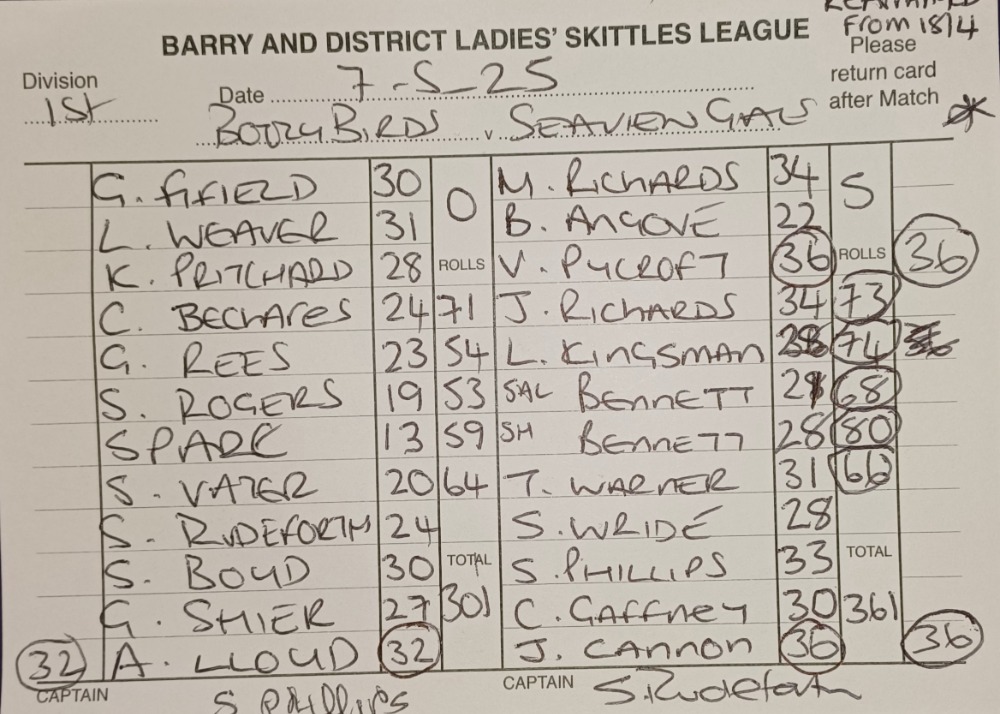 REARRANGED
From 18/4
BARRY AND DISTRICT LADIES' SKITTLES LEAGUE
Please
return card
after Match
Division
1st
Date 7-5-25
BOTTZY BIRDS v SEAVIEW GALS
G. FIFIELD 30 0 M. RICHARDS 34 5
L. WEAVER 31 B. ANGOVE 22
K. PRITCHARD 28 ROLLS V. PYCROFT 36 ROLLS 36
C. BECHARES 24 71 J. RICHARDS 34 73
G. REES 23 54 L. KINGSMAN 74
S. ROGERS 19 53 SAL BENNETT 68
SPARE 13 59 SH BENNETT 28 80
S. VATER 20 64 T. WARNER 31 66
S. RUDEFORTH 24 S. WRIDE 28
S. BOYD 30 TOTAL S. PHILLIPS 33 TOTAL
G. SHIER 27 301 C. GAFFNEY 30 361
32 A. LLOYD 32 J. CANNON 36 36
CAPTAIN S Phillips CAPTAIN S. Rudeforth